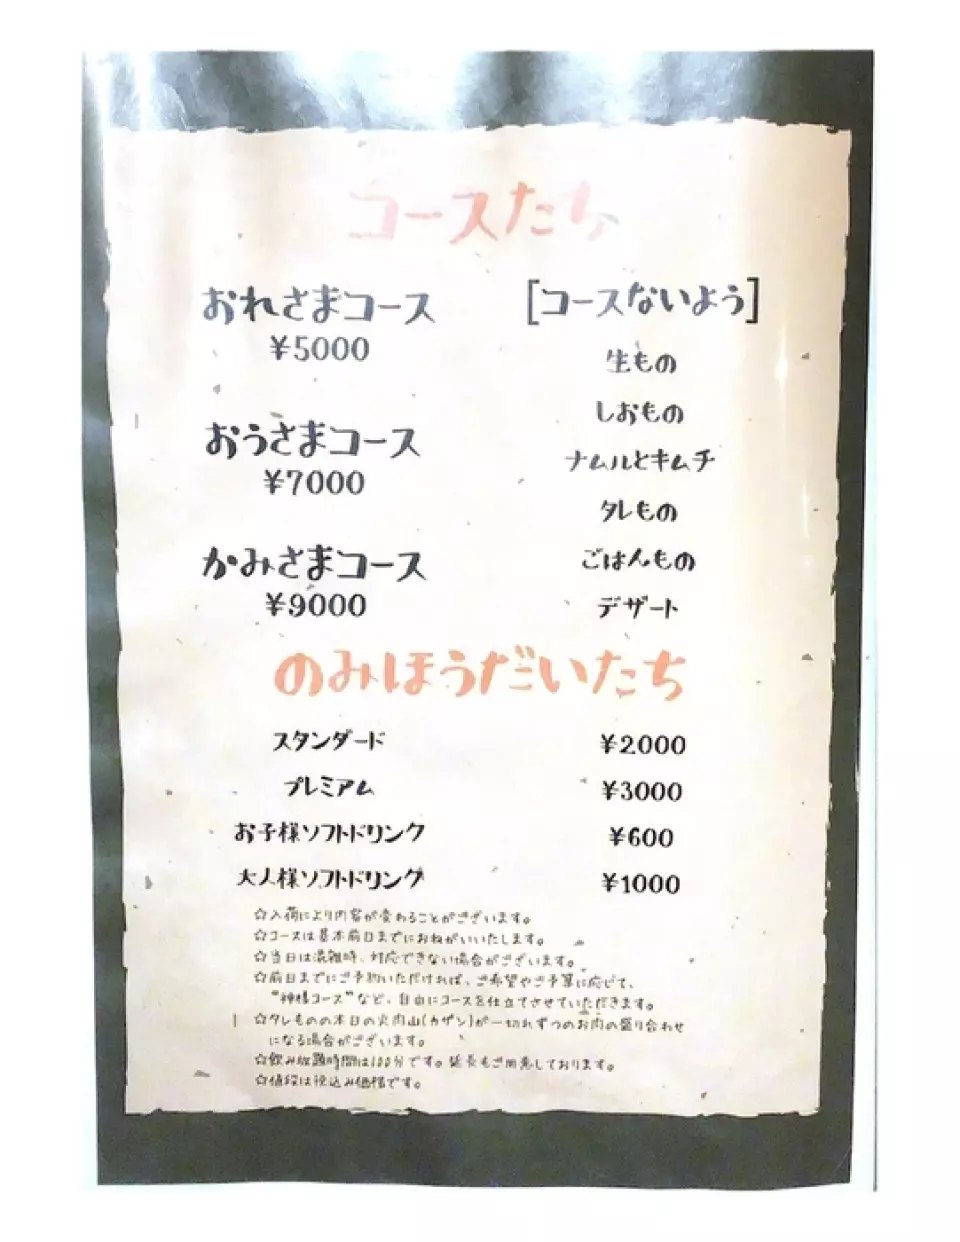 コースたち
おれさまコース
¥5000
おうさまコース
¥7000
かみさまコース
¥9000
[コースないよう]
生もの
しおもの
ナムルとキムチ
タレもの
ごはんもの
デザート
のみほうだいたち
スタンダード ¥2000
プレミアム ¥3000
お子様ソフトドリンク ¥600
大人様ソフトドリンク ¥1000
☆入荷により内容が変わることがございます。
☆コースは基本前日までにおねがいいたします。
☆当日は混雑時、対応できない場合がございます。
☆前日までにご予約いただければ、ご希望やご予算に応じて、
"神様コース"など、自由にコースを仕立てさせていただきます。
☆タレものの本日の火肉山(カザン)が一切れずつのお肉の盛り合わせ
になる場合がございます。
☆飲み放題時間は100分です。延長もご用意しております。
☆値段は税込み価格です。